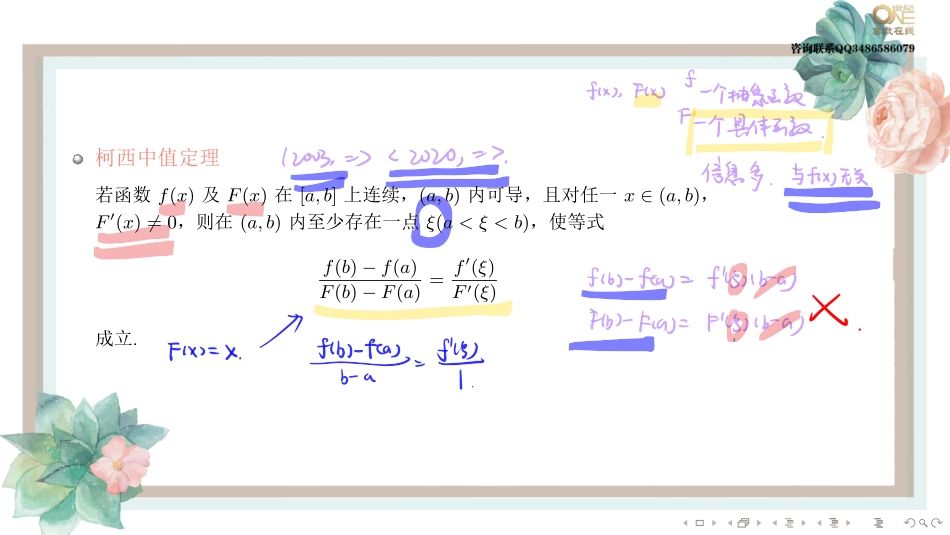 ONE
高数在线
咨询联系QQ3486586079
f(x), F(x)
f 一个抽象函数
F 一个具体函数.
信息多. 与f(x)无关
柯西中值定理
(2003, =>) <2020, =>.
若函数 f(x) 及 F(x) 在 [a, b] 上连续，(a, b) 内可导，且对任一 x ∈ (a, b)，
F′(x) ≠ 0，则在 (a, b) 内至少存在一点 ξ(a < ξ < b)，使等式
f(b) − f(a) / F(b) − F(a) = f′(ξ) / F′(ξ)
f(b)-f(a) = f'(ξ)(b-a)
F(b)-F(a) = F'(ξ)(b-a)
成立.
F(x)=x.
f(b)-f(a) / b-a = f'(ξ) / 1.